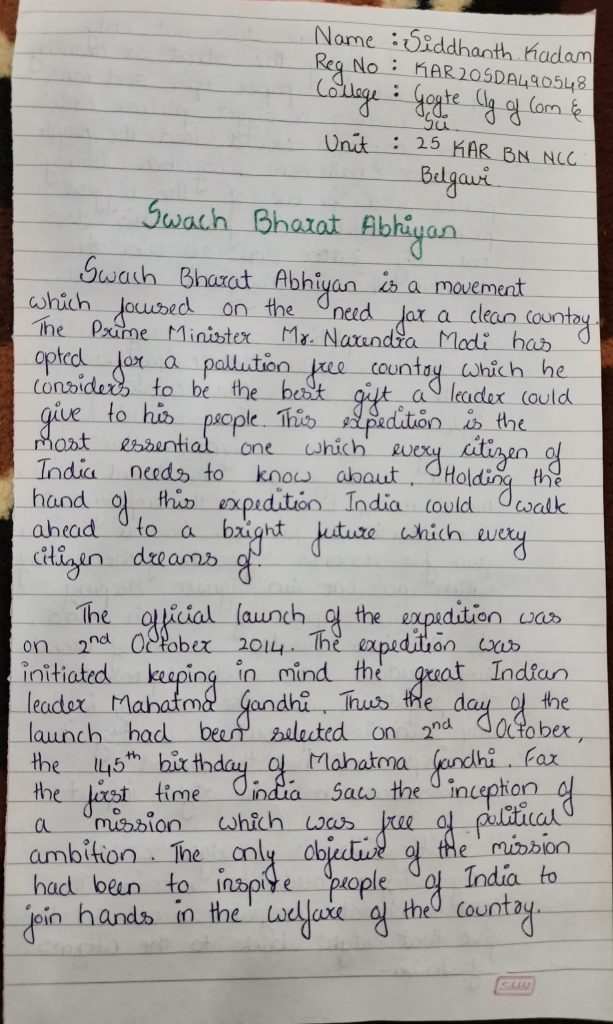 Name : Siddhanth Kadam
Reg No : KAR20SDA490548
College : Gogte Clg of Com &
Sci.
Unit : 25 KAR BN NCC
Belgavi
Swach Bharat Abhiyan
Swach Bharat Abhiyan is a movement
which focused on the need for a clean country.
The Prime Minister Mr. Narendra Modi has
opted for a pollution free country which he
considers to be the best gift a leader could
give to his people. This expedition is the
most essential one which every citizen of
India needs to know about. Holding the
hand of this expedition India could walk
ahead to a bright future which every
citizen dreams of.
The official launch of the expedition was
on 2nd October 2014. The expedition was
initiated keeping in mind the great Indian
leader Mahatma Gandhi. Thus the day of the
launch had been selected on 2nd October,
the 145th birthday of Mahatma Gandhi. For
the first time india saw the inception of
a mission which was free of political
ambition. The only objective of the mission
had been to inspire people of India to
join hands in the welfare of the country.